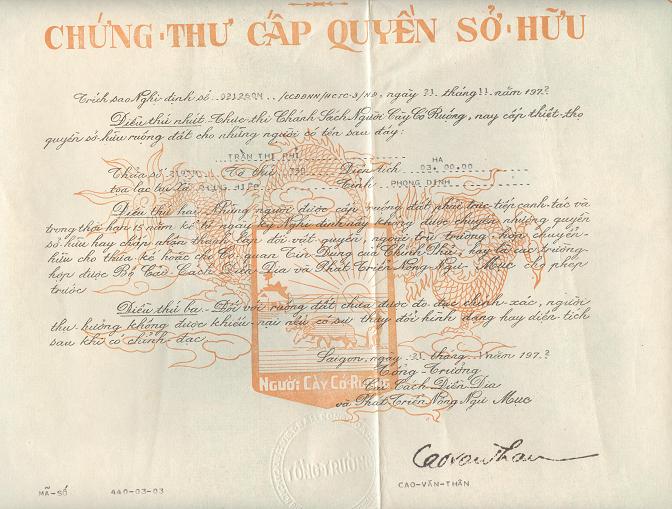 CHỨNG-THƯ CẤP QUYỀN SỞ-HỮU
Trích sao Nghị-định số 0212504 /CCĐĐNN/HCTC-3/NĐ, ngày tháng 11 năm 197
Điều thứ nhứt.- Thực-thi Chánh Sách Người Cày Có Ruộng, nay cấp thiệt-thọ
quyền sở-hữu ruộng đất cho những người có tên sau đây:
TRẦN THỊ PHI HA
Thửa số Tờ thứ 730 Diện tích 03.00.00
tọa lạc tại Xã HIỆP Tỉnh PHONG DINH
Điều thứ hai.- Những người được cấp ruộng đất phải trực tiếp canh-tác và
trong thời hạn 15 năm kể từ ngày ký Nghị định này không được chuyển nhượng quyền
sở-hữu hay chấp nhận thành lập đối vật-quyền, ngoại trừ trường-hợp chuyển-
hữu cho thừa kế hoặc cho Cơ-quan Tín Dụng của Chính Phủ, hay là các trường-
hợp được Bộ Cải Cách Điền Địa và Phát Triển Nông Ngư Mục cho phép
trước.
Điều thứ ba.- Đối với ruộng đất chưa được đo đạc chính-xác, người
thụ-hưởng không được khiếu-nại nếu có sự thay đổi hình dạng hay diện-tích
sau khi có chỉnh-đạc.
Saigon, ngày tháng năm 197
Tổng-Trưởng
Cải Cách Điền Địa
và Phát Triển Nông Ngư Mục
NGƯỜI CÀY CÓ RUỘNG
TỔNG TRƯỞNG
MÃ-SỐ 440-03-03
CAO-VĂN-THÂN